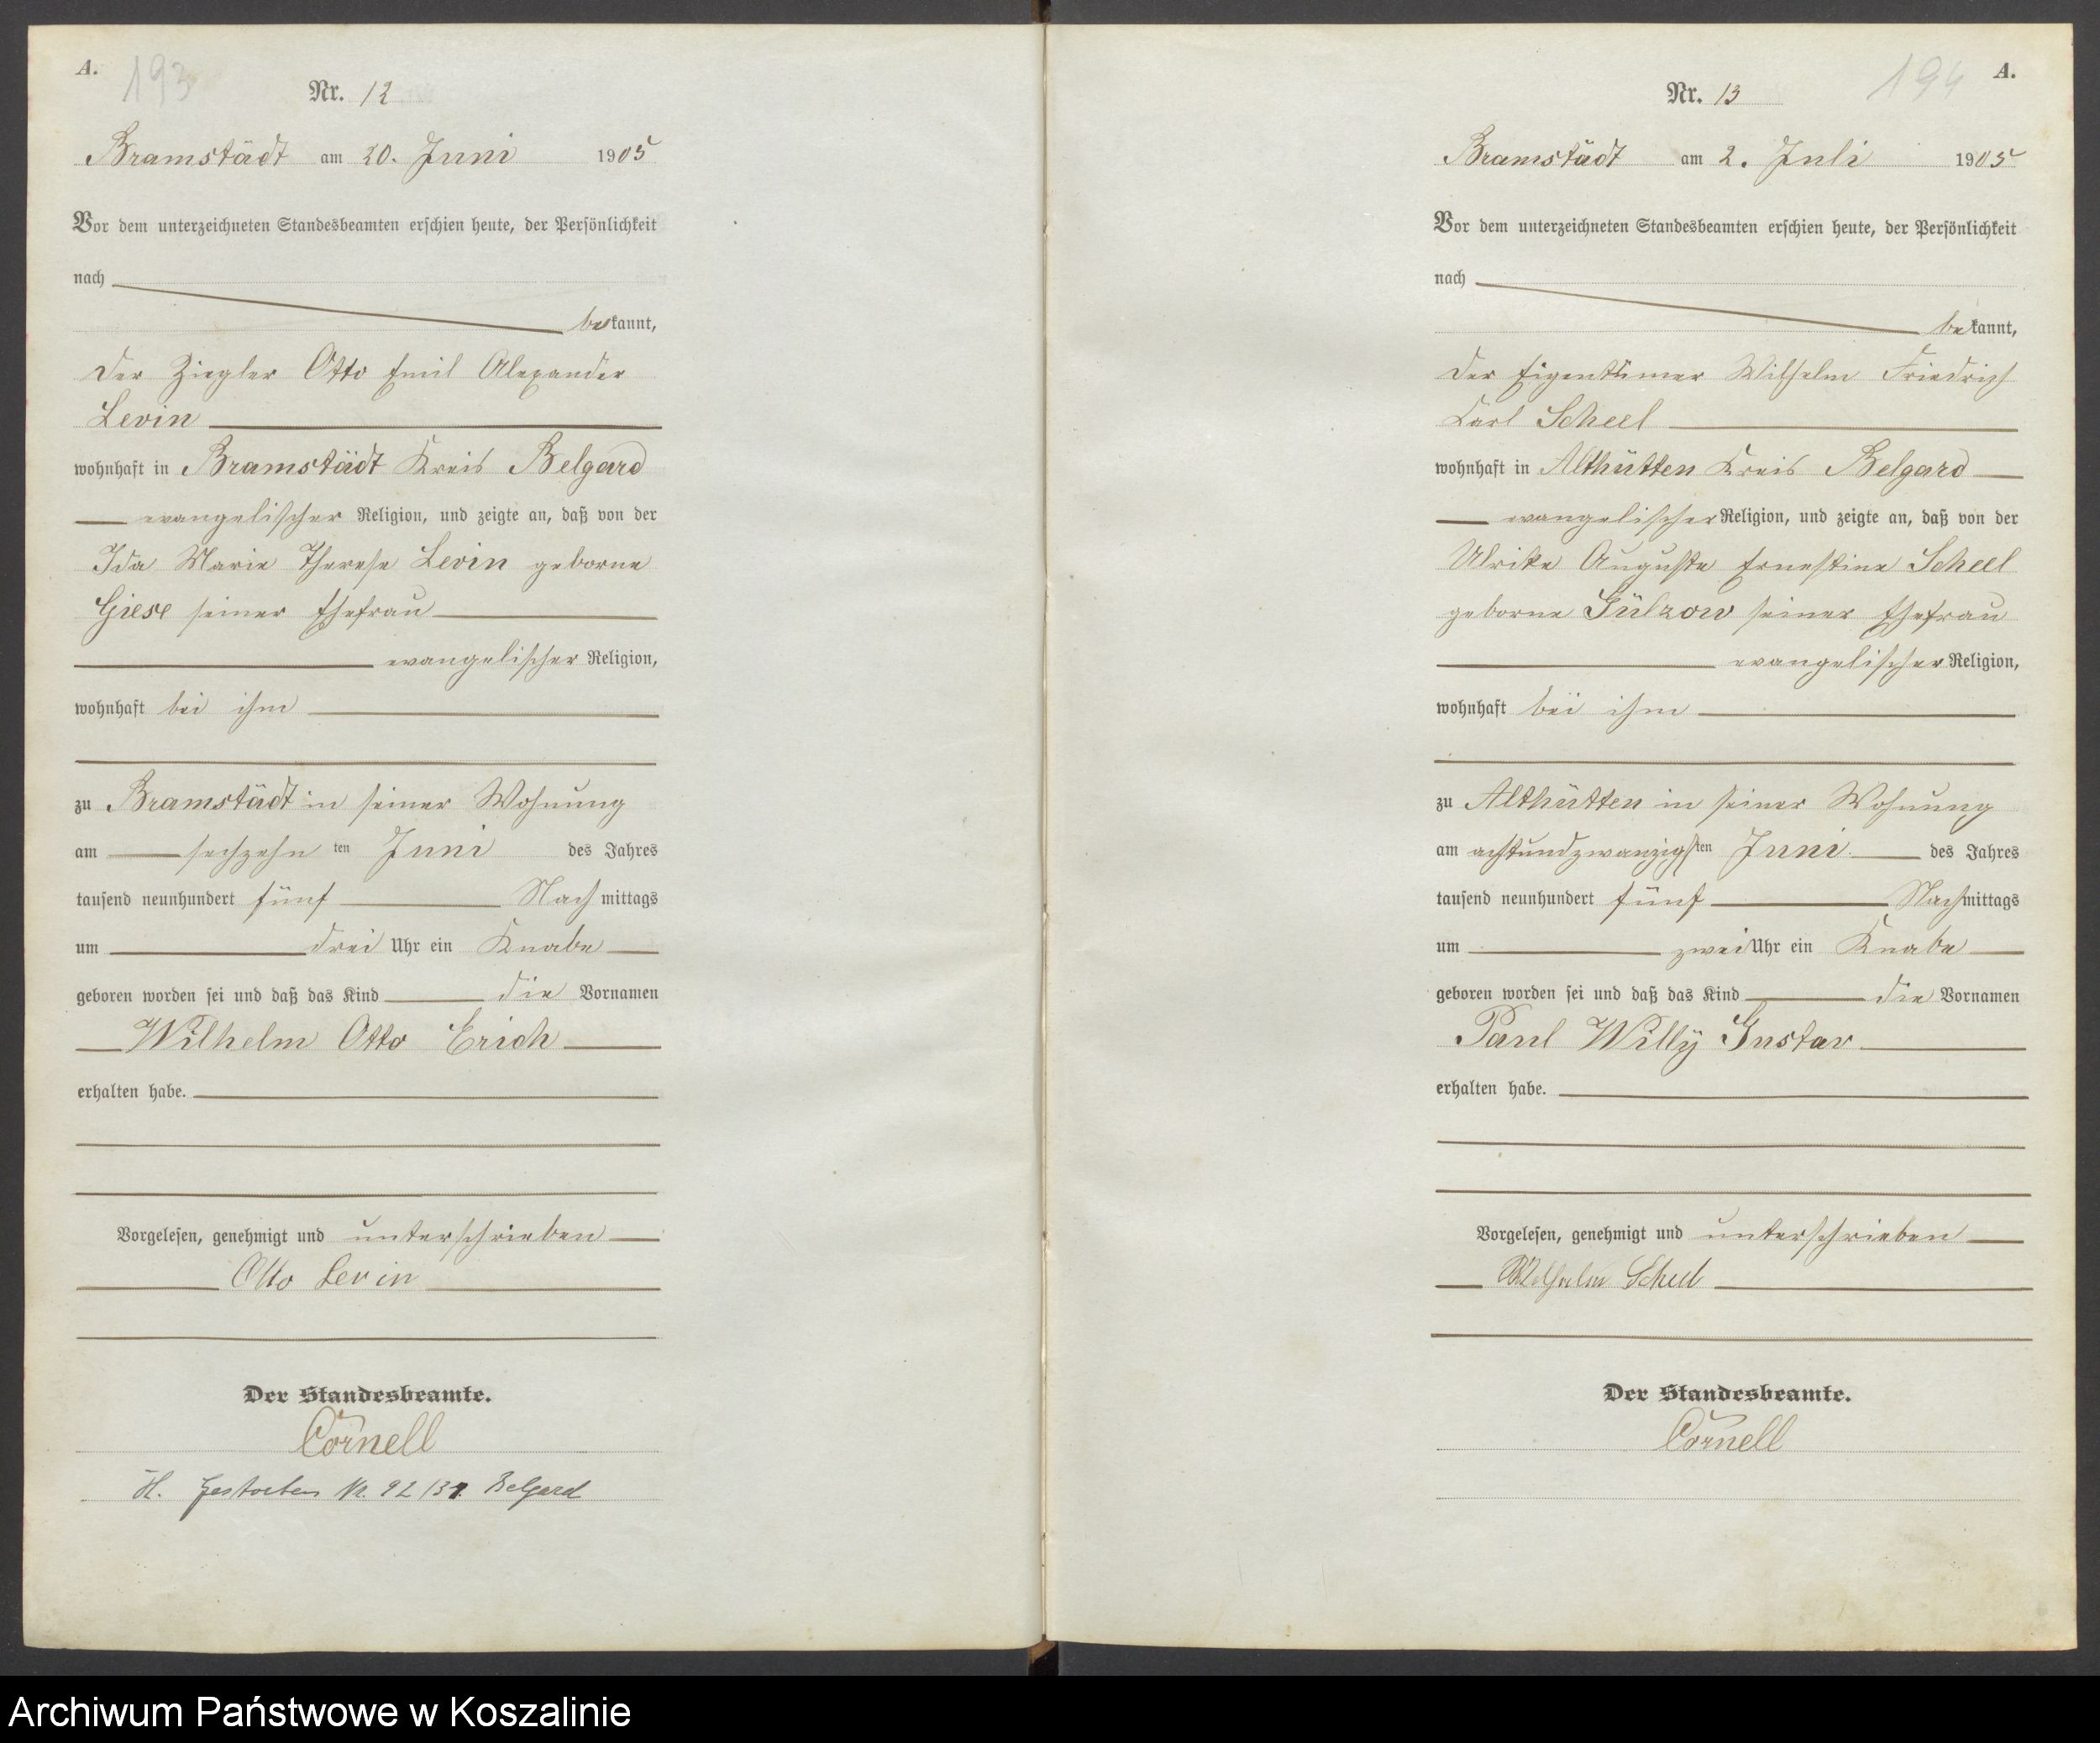 A. 193
Nr. 12
Bramstädt am 20. Juni 1905
Vor dem unterzeichneten Standesbeamten erschien heute, der Persönlichkeit
nach
bekannt,
der Ziegler Otto Emil Alexander
Levin
wohnhaft in Bramstädt Kreis Belgard
evangelischer Religion, und zeigte an, daß von der
Ida Marie Therese Levin geborne
Giese seiner Ehefrau
evangelischer Religion,
wohnhaft bei ihm
zu Bramstädt in seiner Wohnung
am sechzehn ten Juni des Jahres
tausend neunhundert fünf Nachmittags
um drei Uhr ein Knabe
geboren worden sei und daß das Kind die Vornamen
Wilhelm Otto Erich
erhalten habe.
Vorgelesen, genehmigt und unterschrieben
Otto Levin
Der Standesbeamte.
Cornell
H. Gestorben Nr. 92/37. Belgard
194 A.
Nr. 13
Bramstädt am 2. Juli 1905
Vor dem unterzeichneten Standesbeamten erschien heute, der Persönlichkeit
nach
bekannt,
der Eigentümer Wilhelm Friedrich
Carl Scheel
wohnhaft in Althütten Kreis Belgard
evangelischer Religion, und zeigte an, daß von der
Ulrike Auguste Ernestine Scheel
geborne Gülzow seiner Ehefrau
evangelischer Religion,
wohnhaft bei ihm
zu Althütten in seiner Wohnung
am achtundzwanzigsten Juni des Jahres
tausend neunhundert fünf Nachmittags
um zwei Uhr ein Knabe
geboren worden sei und daß das Kind die Vornamen
Paul Willÿ Gustav
erhalten habe.
Vorgelesen, genehmigt und unterschrieben
Wilhelm Scheel
Der Standesbeamte.
Cornell
Archiwum Państwowe w Koszalinie